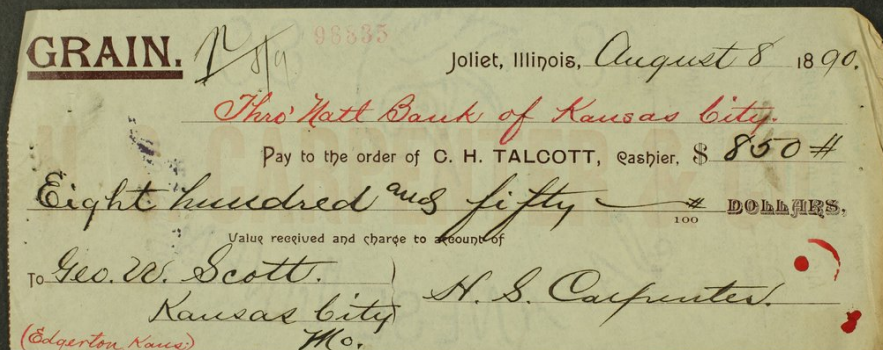 GRAIN. 8/9 98835
Joliet, Illinois, August 8 1890.
Thro' Natl Bank of Kansas City.
Pay to the order of C. H. TALCOTT, Cashier, $ 850 #
Eight hundred and fifty # / 100 DOLLARS.
Value received and charge to account of
To Geo. W. Scott. H. S. Carpenter.
Kansas City
(Edgerton Kans:) Mo.